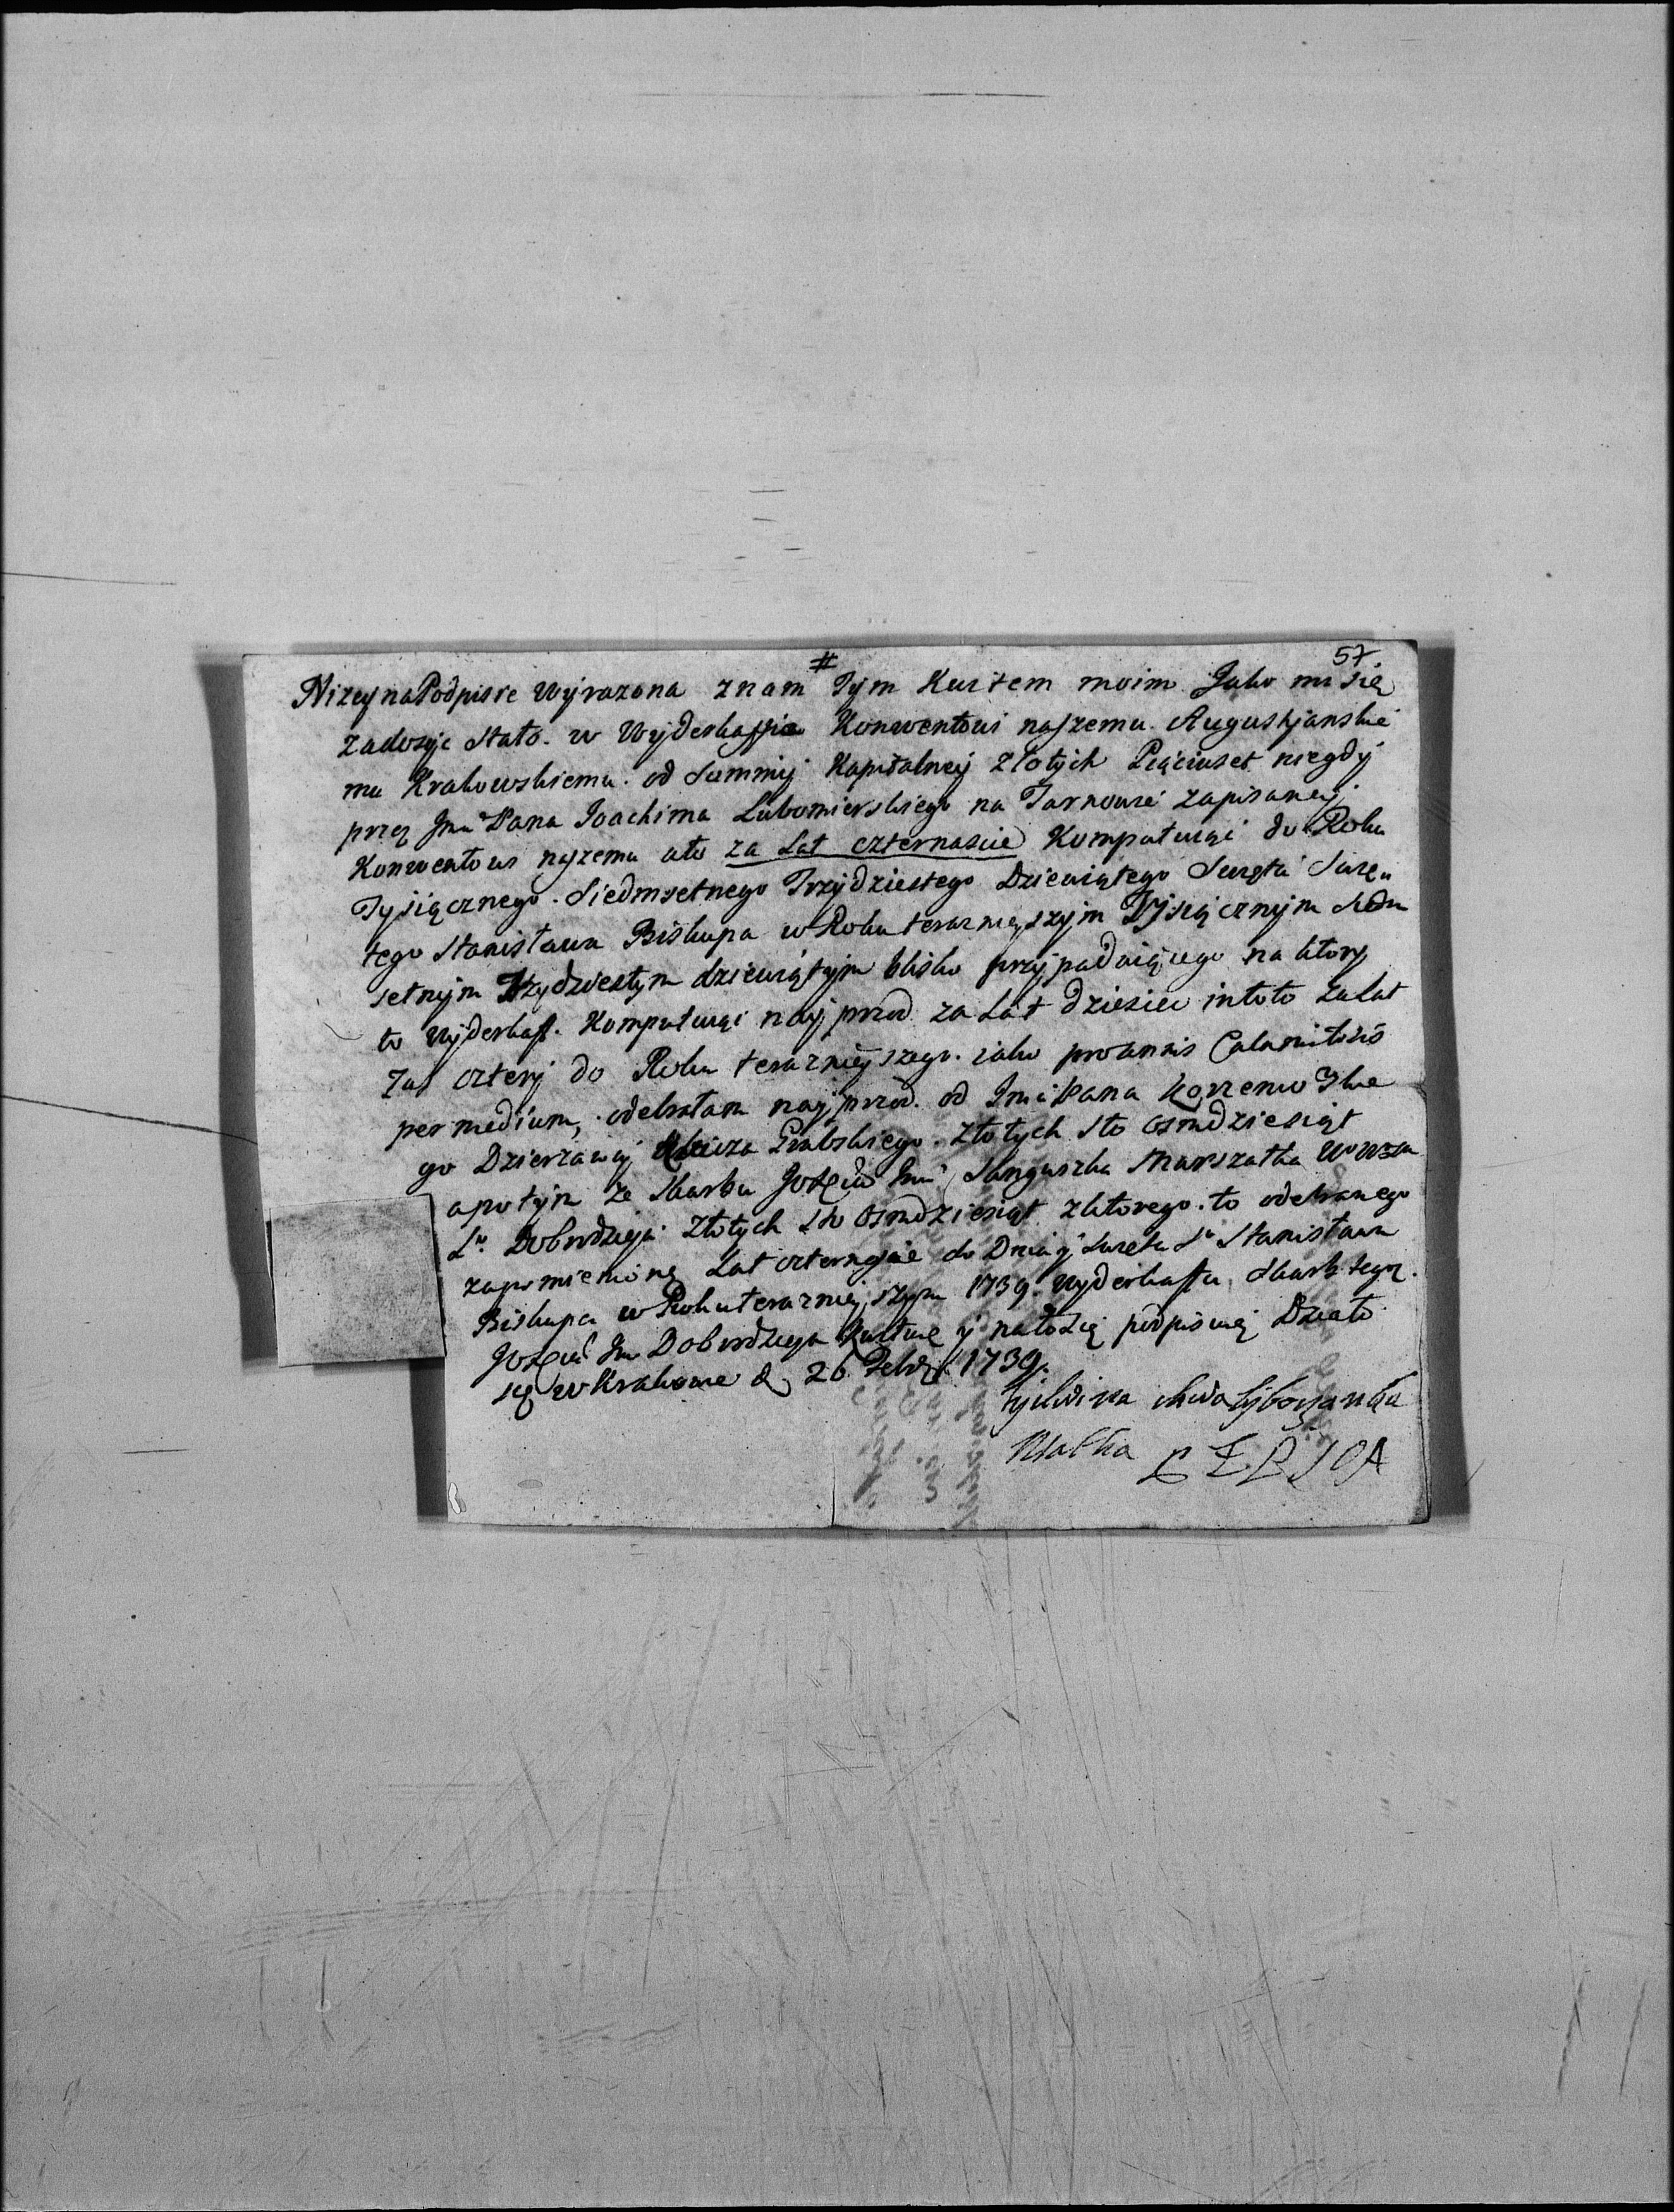 57
#
Nizey na Podpisie wyrazona znam Tym Kwitem moim Jako mi się
zadosyc stało. w Wyderkaffie Konwentowi naszemu Augustjanskie
mu Krakowskiemu. od Summy Kapitalney Złotych Pięciuset niegdy
przez Jmci Pana Joachima Lubomierskiego na Tarnowie zapisaney.
Konwentowi naszemu ato za Lat czternascie Komputuiąc do Roku
Tysiącznego. Siedmsetnego Trzydziestego Dziewiątego Swięta Swię
tego Stanisława Biskupa w Roku teraznieyszym Tysiącznym siedm
setnym Trzydziestym dziewiątym blisko przypadaiącego na ktory
to wyderkaff. Komputuiąc nayprzod za Lat dziesiec in toto za Lat
zas cztery do Roku teraznieyszego. iako pro annis Calamitosis
per medium, odebrałam nayprzod. od Jmci Pana Korzeniowskie
go Dzierzawcy Klucza złotych sto osmdziesiąt
apotym ze Skarbu Jmci Sanguszka Marszałka
Dobrodzieja Złotych sto osmdziesiąt zktorego. to odebranego
zapomienione Lat czternascie do Dnia Swięta S. Stanisława
Biskupa w Roku teraznieyszym 1739. wyderkaffu Skarb tegoz.
Jm Dobrodzieja kwituię y nato się podpisuię Działo
się w Krakowie d 26 Febr 1739.
Matka